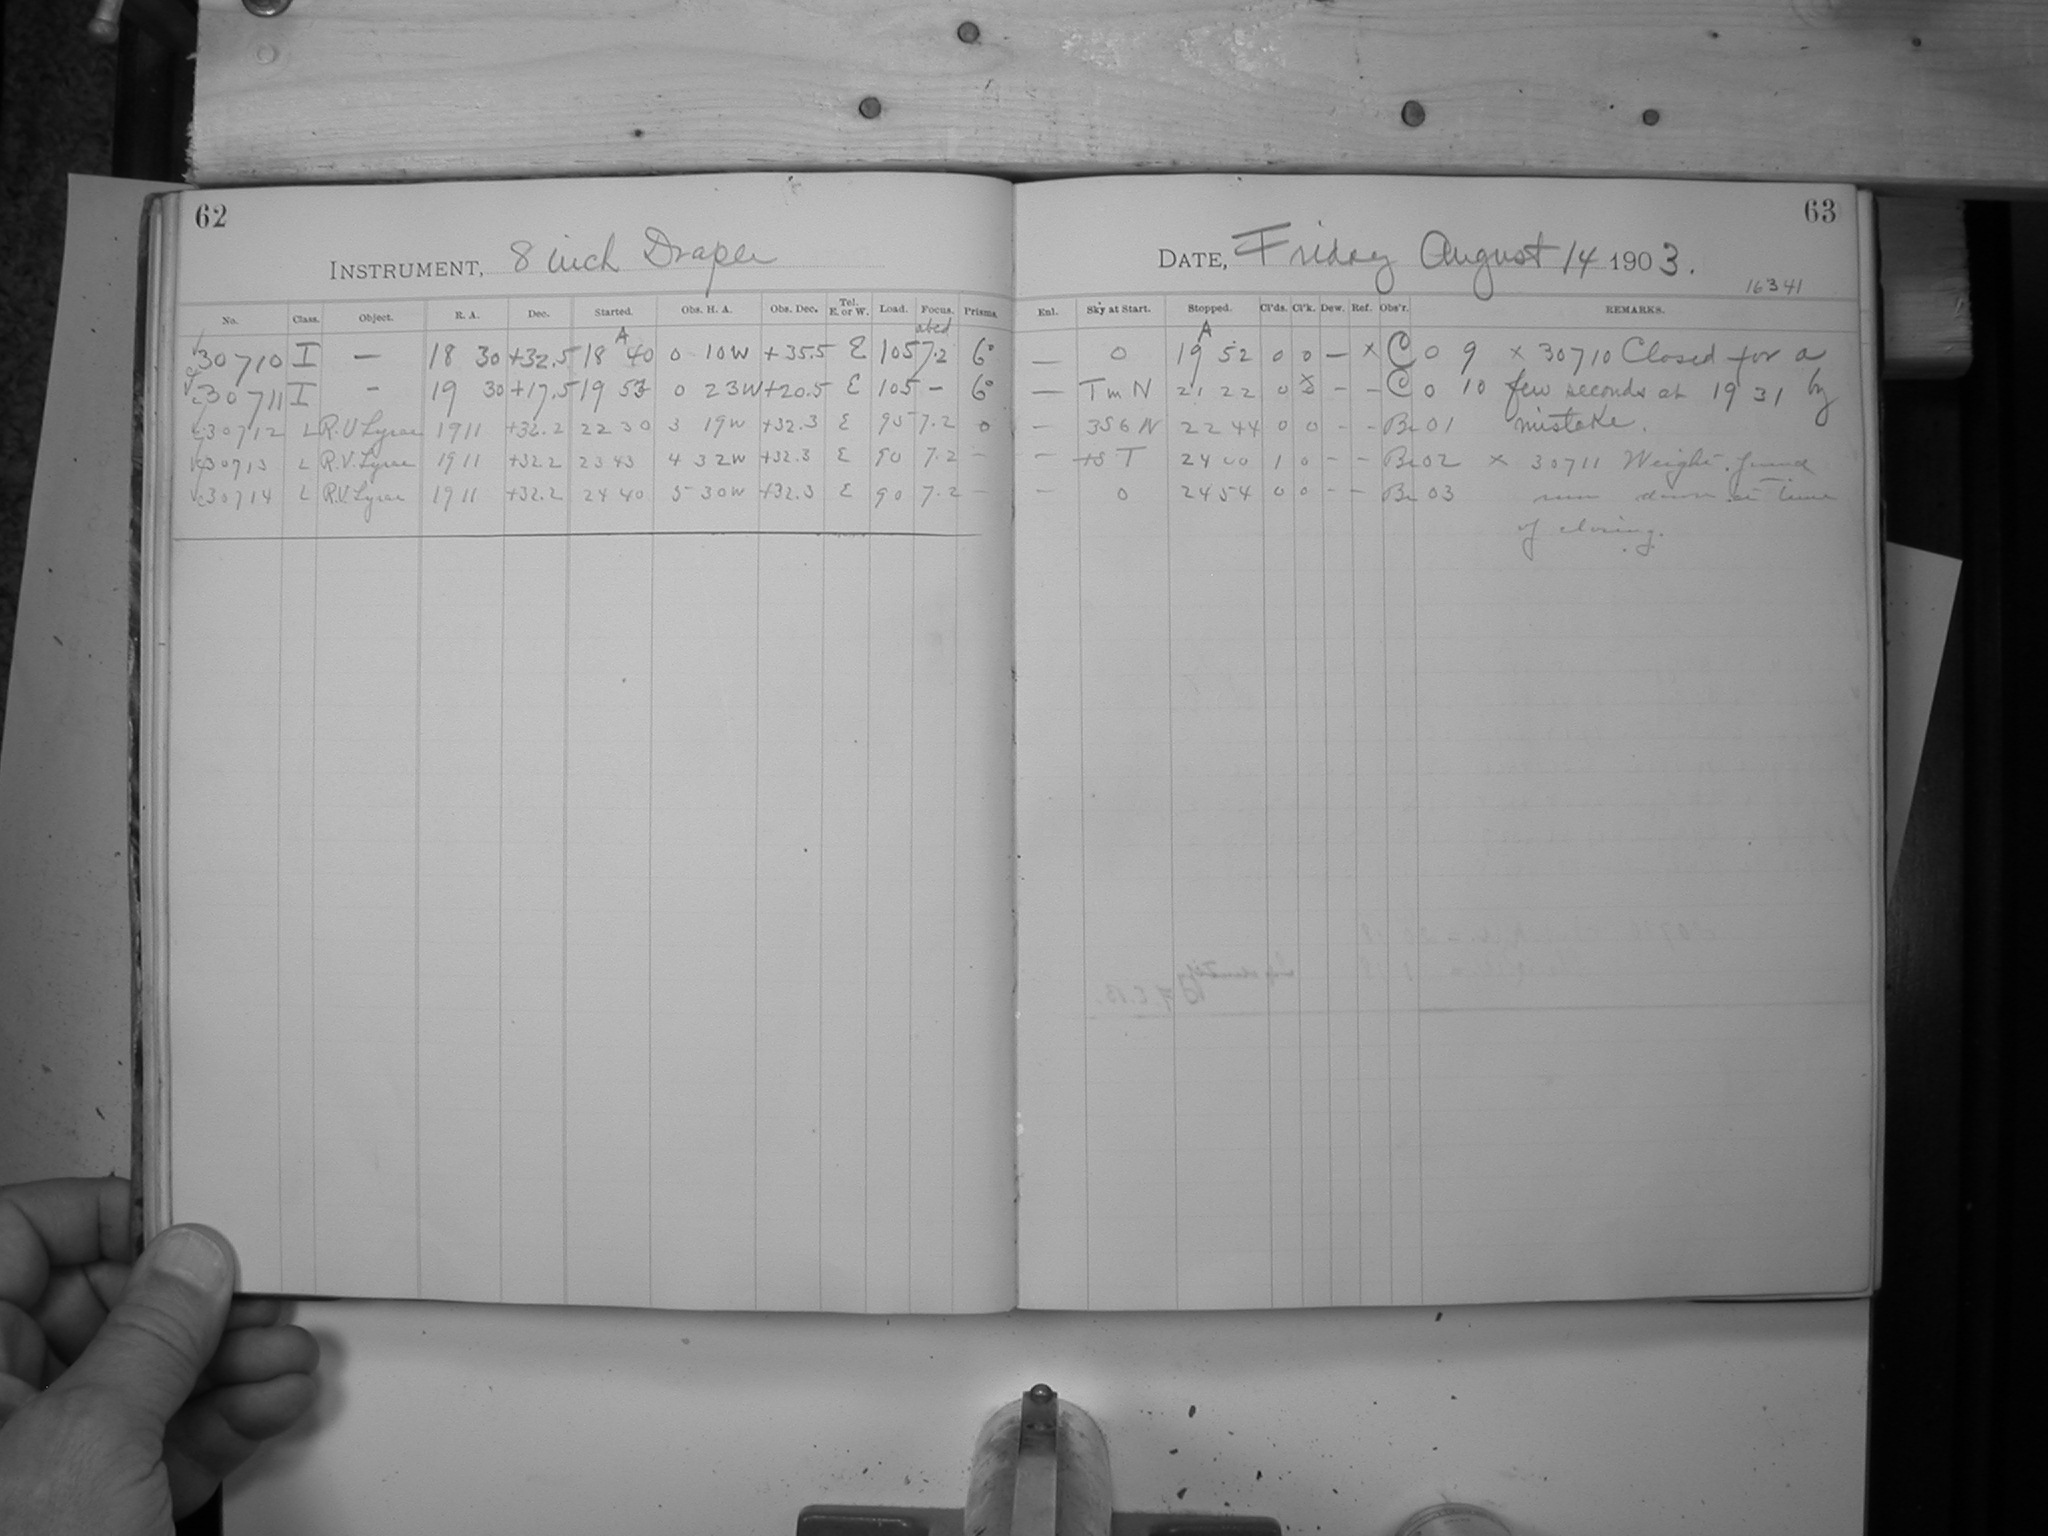 62
INSTRUMENT, 8 inch Draper
No. Class. Object. R. A. Dec. Started. Obs. H. A. Obs. Dec. Tel. E. or W. Load. Focus. Prisms.
A abcd
30710 I — 18 30 +32.5 18 40 0 10W +35.5 E 105 7.2 6°
30711 I - 19 30 +17.5 19 53 0 23W +20.5 E 105 - 6°
30712 L R.V. Lyrae 19 11 +32.2 22 30 3 19W +32.3 E 95 7.2 0
30713 L R.V. Lyrae 19 11 +32.2 23 43 4 32W +32.3 E 90 7.2 -
30714 L R.V. Lyrae 19 11 +32.2 24 40 5 30W +32.3 E 90 7.2 -
63
DATE, Friday August 14 1903.
16341
Enl. Sky at Start. Stopped. Cl'ds. Cl'k. Dew. Ref. Obs'r. REMARKS.
A
— 0 19 52 0 0 — x C 0 9 x 30710 Closed for a
— T m N 21 22 0 x - - C 0 10 few seconds at 19 31 by
— 356 N 22 44 0 0 - - Br 01 mistake.
- +s T 24 00 1 0 - - Br 02 x 30711 Weight found
- 0 24 54 0 0 - - Br 03 run down at time
of closing.